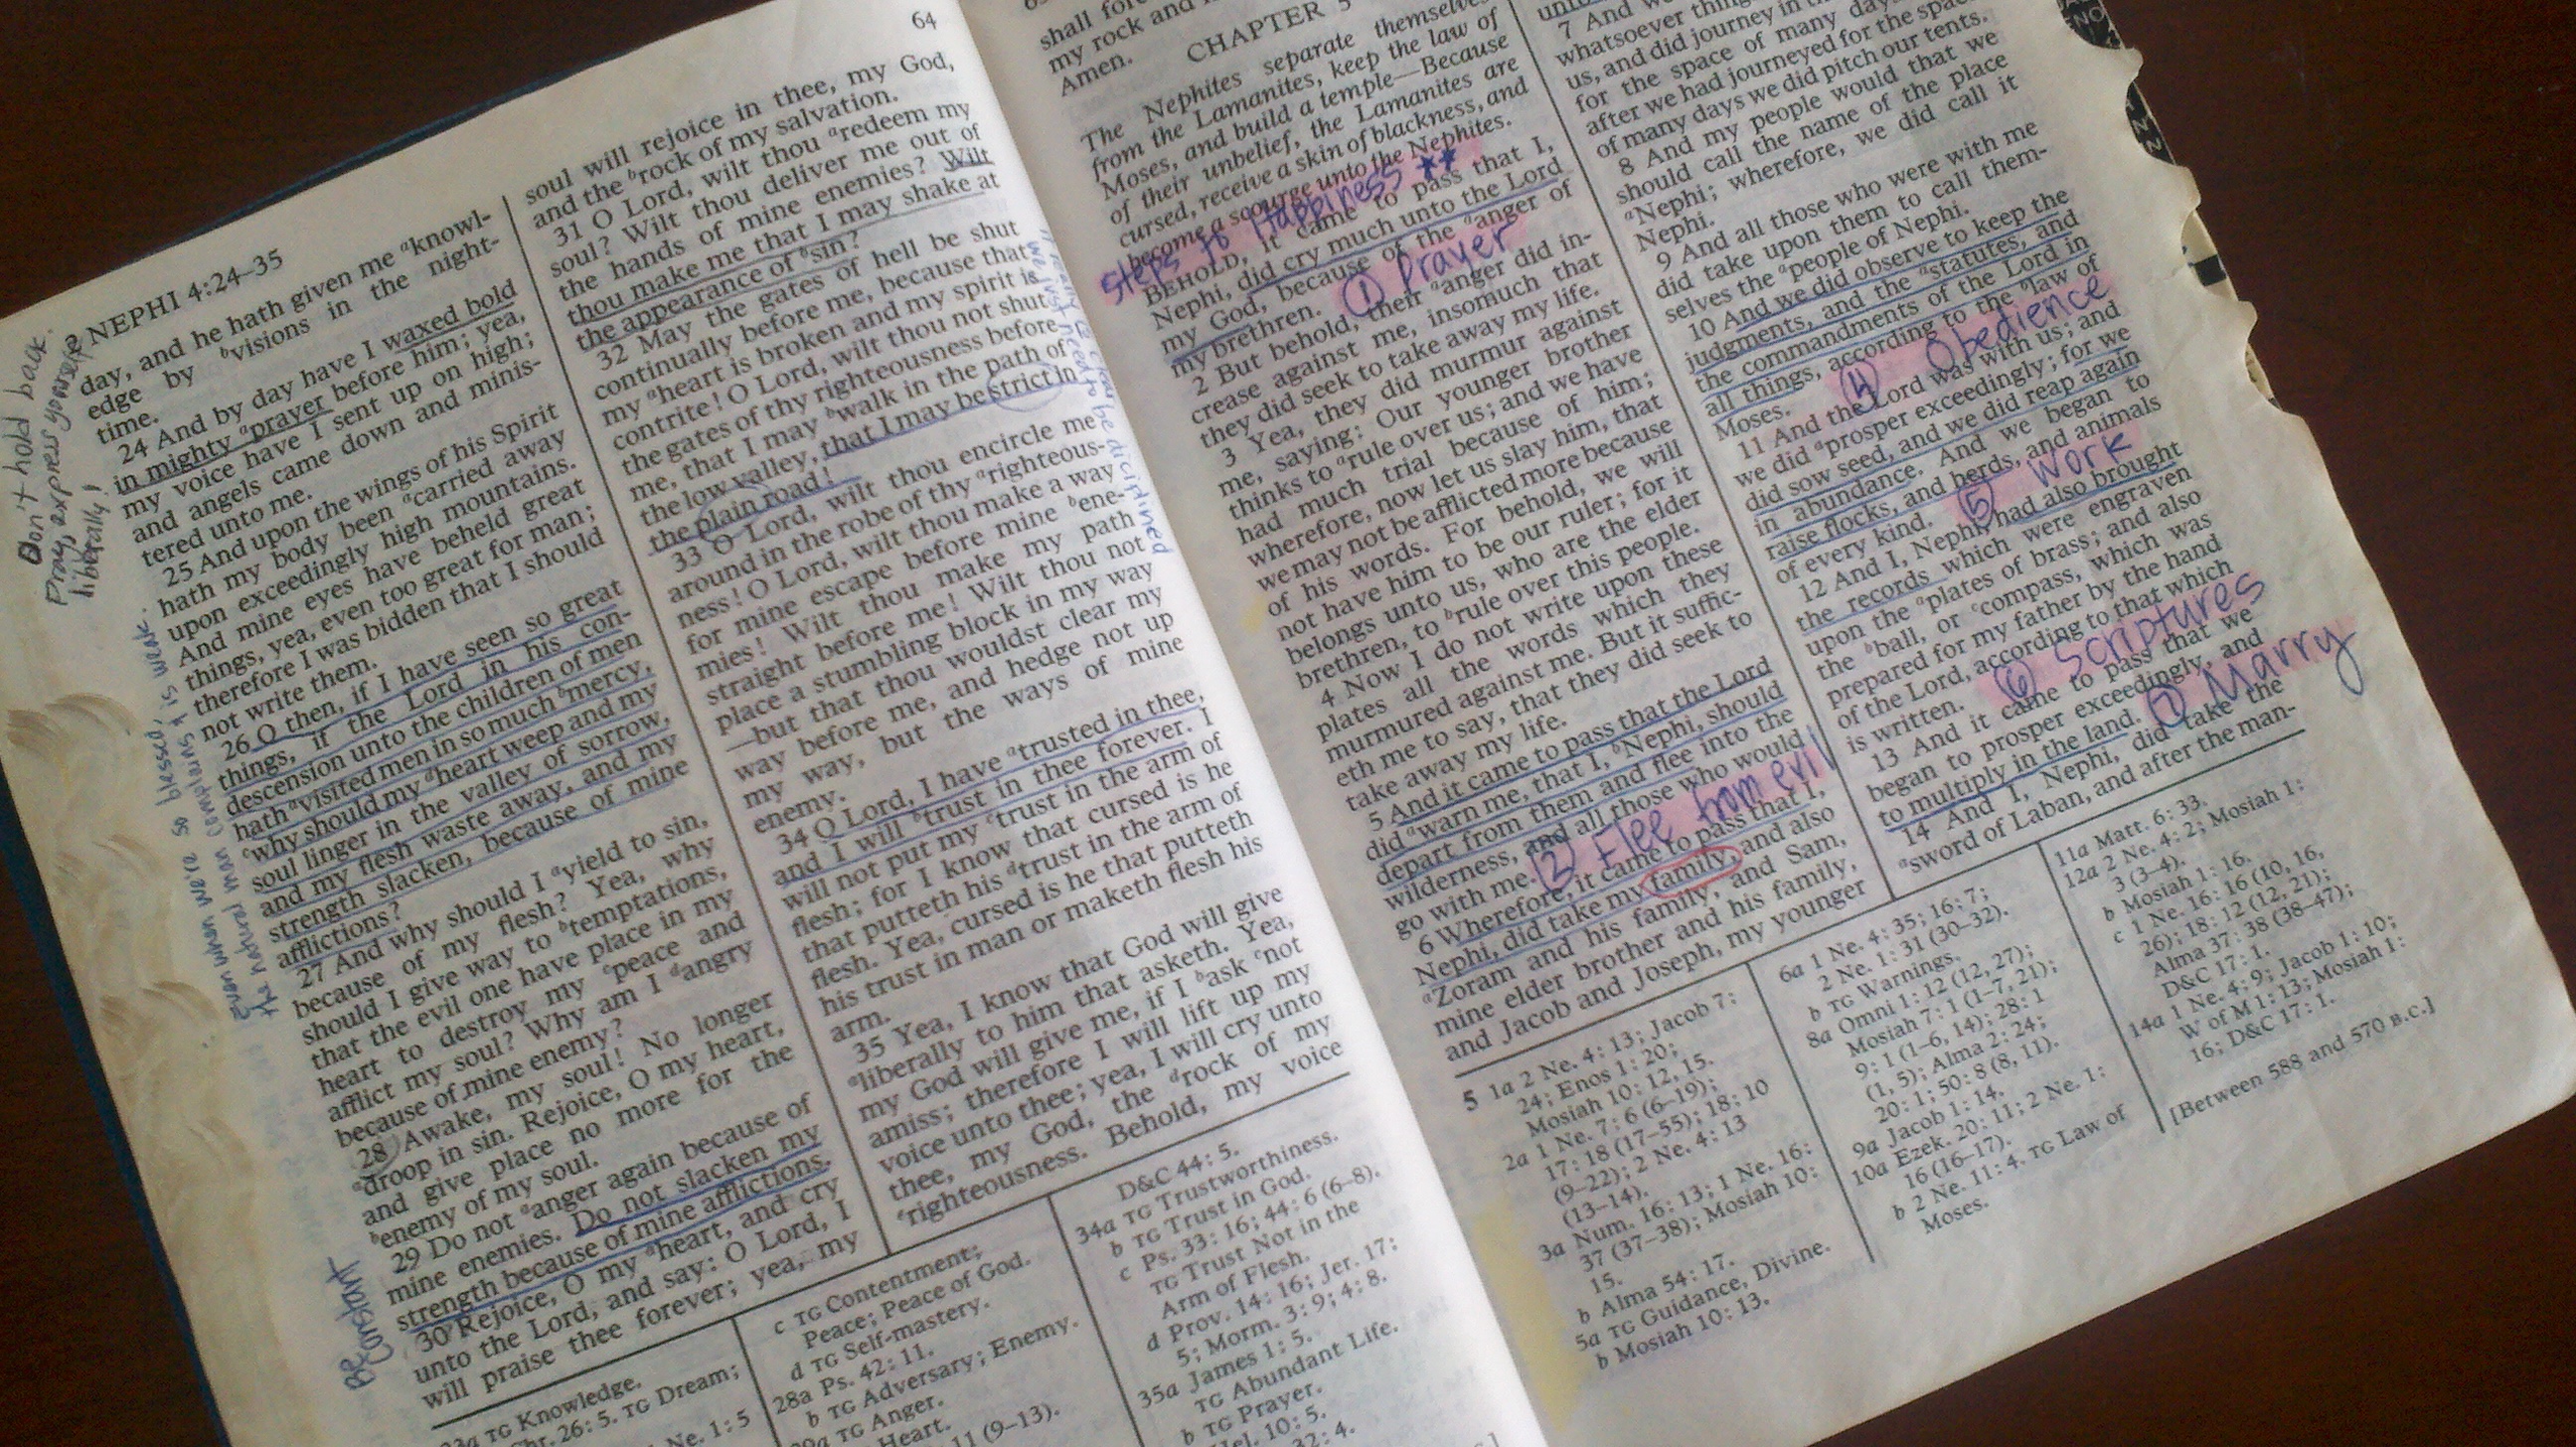 64
2 NEPHI 4:24–35
day, and he hath given me ᵃknowl-
edge by ᵇvisions in the night-
time.
24 And by day have I waxed bold
in mighty ᵃprayer before him; yea,
my voice have I sent up on high;
and angels came down and minis-
tered unto me.
25 And upon the wings of his Spirit
hath my body been ᵃcarried away
upon exceedingly high mountains.
And mine eyes have beheld great
things, yea, even too great for man;
therefore I was bidden that I should
not write them.
26 O then, if I have seen so great
things, if the Lord in his con-
descension unto the children of men
hath ᵃvisited men in so much ᵇmercy,
ᶜwhy should my ᵈheart weep and my
soul linger in the valley of sorrow,
and my flesh waste away, and my
strength slacken, because of mine
afflictions?
27 And why should I ᵃyield to sin,
because of my flesh? Yea, why
should I give way to ᵇtemptations,
that the evil one have place in my
heart to destroy my ᶜpeace and
afflict my soul? Why am I ᵈangry
because of mine enemy?
28 Awake, my soul! No longer
ᵃdroop in sin. Rejoice, O my heart,
and give place no more for the
ᵇenemy of my soul.
29 Do not ᵃanger again because of
mine enemies. Do not slacken my
strength because of mine afflictions.
30 Rejoice, O my ᵃheart, and cry
unto the Lord, and say: O Lord, I
will praise thee forever; yea, my
soul will rejoice in thee, my God,
and the ᵇrock of my salvation.
31 O Lord, wilt thou ᵃredeem my
soul? Wilt thou deliver me out of
the hands of mine enemies? Wilt
thou make me that I may shake at
the appearance of ᵇsin?
32 May the gates of hell be shut
continually before me, because that
my ᵃheart is broken and my spirit is
contrite! O Lord, wilt thou not shut
the gates of thy righteousness before
me, that I may ᵇwalk in the path of
the low valley, that I may be strict in
the plain road!
33 O Lord, wilt thou encircle me
around in the robe of thy ᵃrighteous-
ness! O Lord, wilt thou make a way
for mine escape before mine ᵇene-
mies! Wilt thou make my path
straight before me! Wilt thou not
place a stumbling block in my way
—but that thou wouldst clear my
way before me, and hedge not up
my way, but the ways of mine
enemy.
34 O Lord, I have ᵃtrusted in thee,
and I will ᵇtrust in thee forever. I
will not put my ᶜtrust in the arm of
flesh; for I know that cursed is he
that putteth his ᵈtrust in the arm of
flesh. Yea, cursed is he that putteth
his trust in man or maketh flesh his
arm.
35 Yea, I know that God will give
ᵃliberally to him that asketh. Yea,
my God will give me, if I ᵇask ᶜnot
amiss; therefore I will lift up my
voice unto thee; yea, I will cry unto
thee, my God, the ᵈrock of my
ᵉrighteousness. Behold, my voice
Don't hold back.
Pray, express yourself
liberally!
even when we're so blessed,
the natural man complains & is weak.
Be
Constant
be diciplined
TG Knowledge.
TG Dream;
c TG Contentment;
Peace; Peace of God.
d TG Self-mastery.
28a Ps. 42:11.
b TG Adversary; Enemy.
TG Anger.
Heart.
11 (9–13).
D&C 44:5.
34a TG Trustworthiness.
b TG Trust in God.
c Ps. 33:16; 44:6 (6–8).
TG Trust Not in the
Arm of Flesh.
d Prov. 14:16; Jer. 17:
5; Morm. 3:9; 4:8.
35a James 1:5.
TG Abundant Life.
b TG Prayer.
Hel. 10:5.
shall
my rock and
Amen.
CHAPTER 5
The Nephites separate themselves
from the Lamanites, keep the law of
Moses, and build a temple—Because
of their unbelief, the Lamanites are
cursed, receive a skin of blackness, and
become a scourge unto the Nephites.
Steps to Happiness ★★
BEHOLD, it came to pass that I,
Nephi, did cry much unto the Lord
my God, because of the ᵃanger of
my brethren.
① Prayer
2 But behold, their ᵃanger did in-
crease against me, insomuch that
they did seek to take away my life.
3 Yea, they did murmur against
me, saying: Our younger brother
thinks to ᵃrule over us; and we have
had much trial because of him;
wherefore, now let us slay him, that
we may not be afflicted more because
of his words. For behold, we will
not have him to be our ruler; for it
belongs unto us, who are the elder
brethren, to ᵇrule over this people.
4 Now I do not write upon these
plates all the words which they
murmured against me. But it suffic-
eth me to say, that they did seek to
take away my life.
5 And it came to pass that the Lord
did ᵃwarn me, that I, ᵇNephi, should
depart from them and flee into the
wilderness, and all those who would
go with me.
② Flee from evil
6 Wherefore, it came to pass that I,
Nephi, did take my family, and also
ᵃZoram and his family, and Sam,
mine elder brother and his family,
and Jacob and Joseph, my younger
7 And we
whatsoever things
us, and did journey in the
for the space of many days
after we had journeyed for the space
of many days we did pitch our tents.
8 And my people would that we
should call the name of the place
ᵃNephi; wherefore, we did call it
Nephi.
9 And all those who were with me
did take upon them to call them-
selves the ᵃpeople of Nephi.
10 And we did observe to keep the
judgments, and the ᵃstatutes, and
the commandments of the Lord in
all things, according to the ᵇlaw of
Moses.
④ Obedience
11 And the Lord was with us; and
we did ᵃprosper exceedingly; for we
did sow seed, and we did reap again
in abundance. And we began to
raise flocks, and herds, and animals
of every kind.
⑤ Work
12 And I, Nephi, had also brought
the records which were engraven
upon the ᵃplates of brass; and also
the ᵇball, or ᶜcompass, which was
prepared for my father by the hand
of the Lord, according to that which
is written.
⑥ Scriptures
13 And it came to pass that we
began to prosper exceedingly, and
to multiply in the land.
⑦ Marry
14 And I, Nephi, did take the
ᵃsword of Laban, and after the man-
5 1a 2 Ne. 4:13; Jacob 7:
24; Enos 1:20;
Mosiah 10:12, 15.
2a 1 Ne. 7:6 (6–19);
17:18 (17–55); 18:10
(9–22); 2 Ne. 4:13
(13–14).
3a Num. 16:13; 1 Ne. 16:
37 (37–38); Mosiah 10:
15.
b Alma 54:17.
5a TG Guidance, Divine.
b Mosiah 10:13.
6a 1 Ne. 4:35; 16:7;
2 Ne. 1:31 (30–32).
b TG Warnings.
8a Omni 1:12 (12, 27);
Mosiah 7:1 (1–7, 21);
9:1 (1–6, 14); 28:1
(1, 5); Alma 2:24;
20:1; 50:8 (8, 11).
9a Jacob 1:14.
10a Ezek. 20:11; 2 Ne. 1:
16 (16–17).
b 2 Ne. 11:4. TG Law of
Moses.
11a Matt. 6:33.
12a 2 Ne. 4:2; Mosiah 1:
3 (3–4).
b Mosiah 1:16.
c 1 Ne. 16:16 (10, 16,
26); 18:12 (12, 21);
Alma 37:38 (38–47);
D&C 17:1.
14a 1 Ne. 4:9; Jacob 1:10;
W of M 1:13; Mosiah 1:
16; D&C 17:1.
[Between 588 and 570 B.C.]